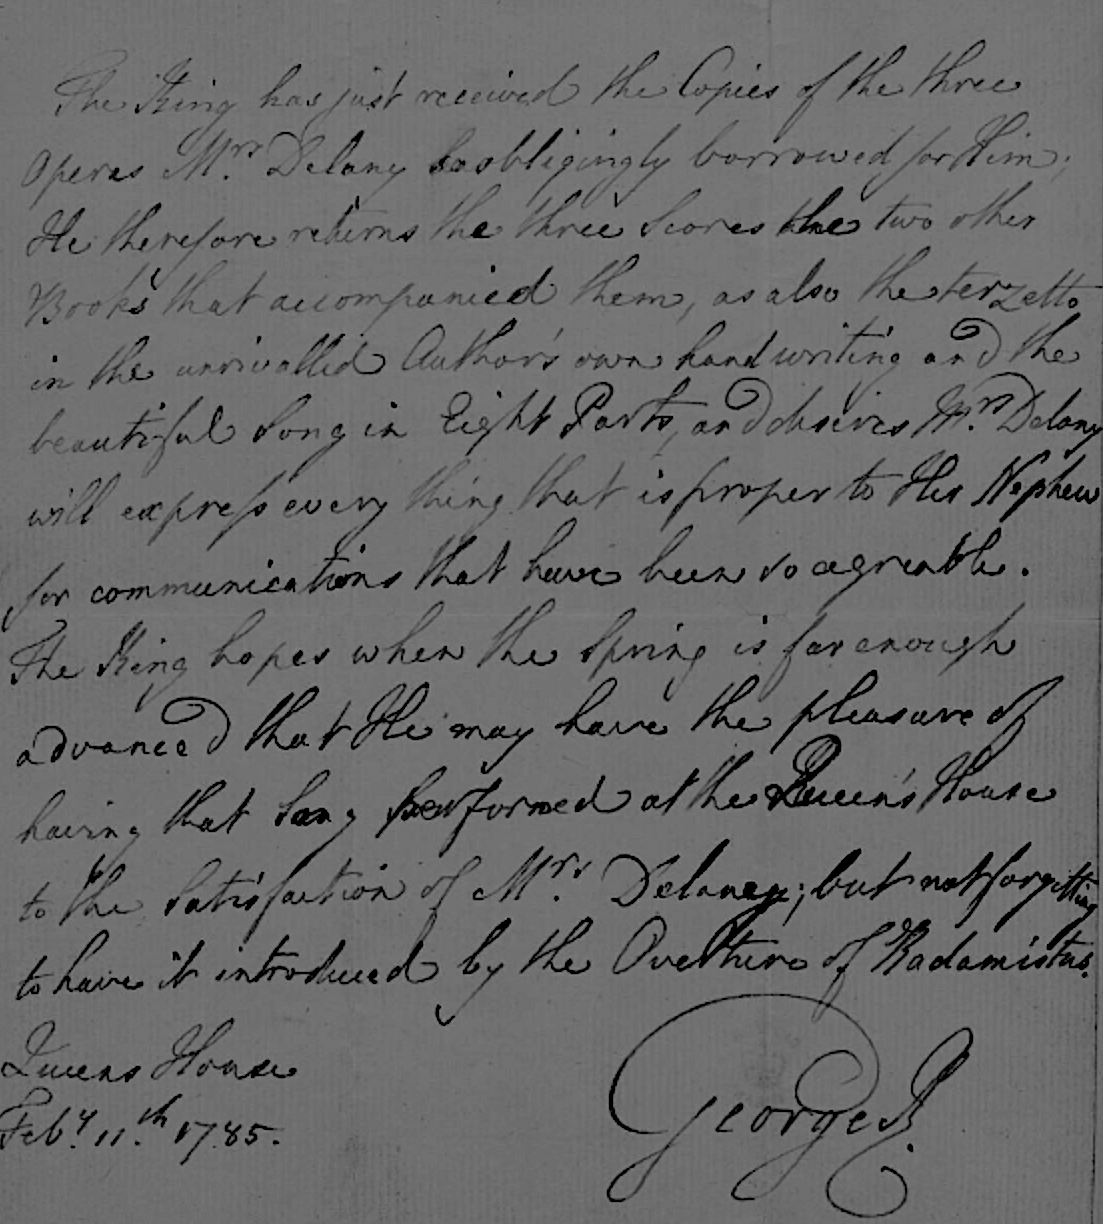 The King has just received the Copies of the three
Operas Mrs. Delany so obligingly borrowed for Him;
He therefore returns the three Scores the two other
Books that accompanied them, as also the terzetto
in the unrivalled Author's own handwriting and the
beautiful Song in Eight Parts, and desires Mrs. Delany
will express every thing that is proper to Her Nephew
for communications that have been so agreable.
The King hopes when the Spring is far enough
advanced that He may have the pleasure of
having that Song performed at the Queen's House
to the satisfaction of Mrs. Delaney; but not forgetting
to have it introduced by the Overture of Radamistus.
Queens House
Feby. 11.th 1785.
George R.